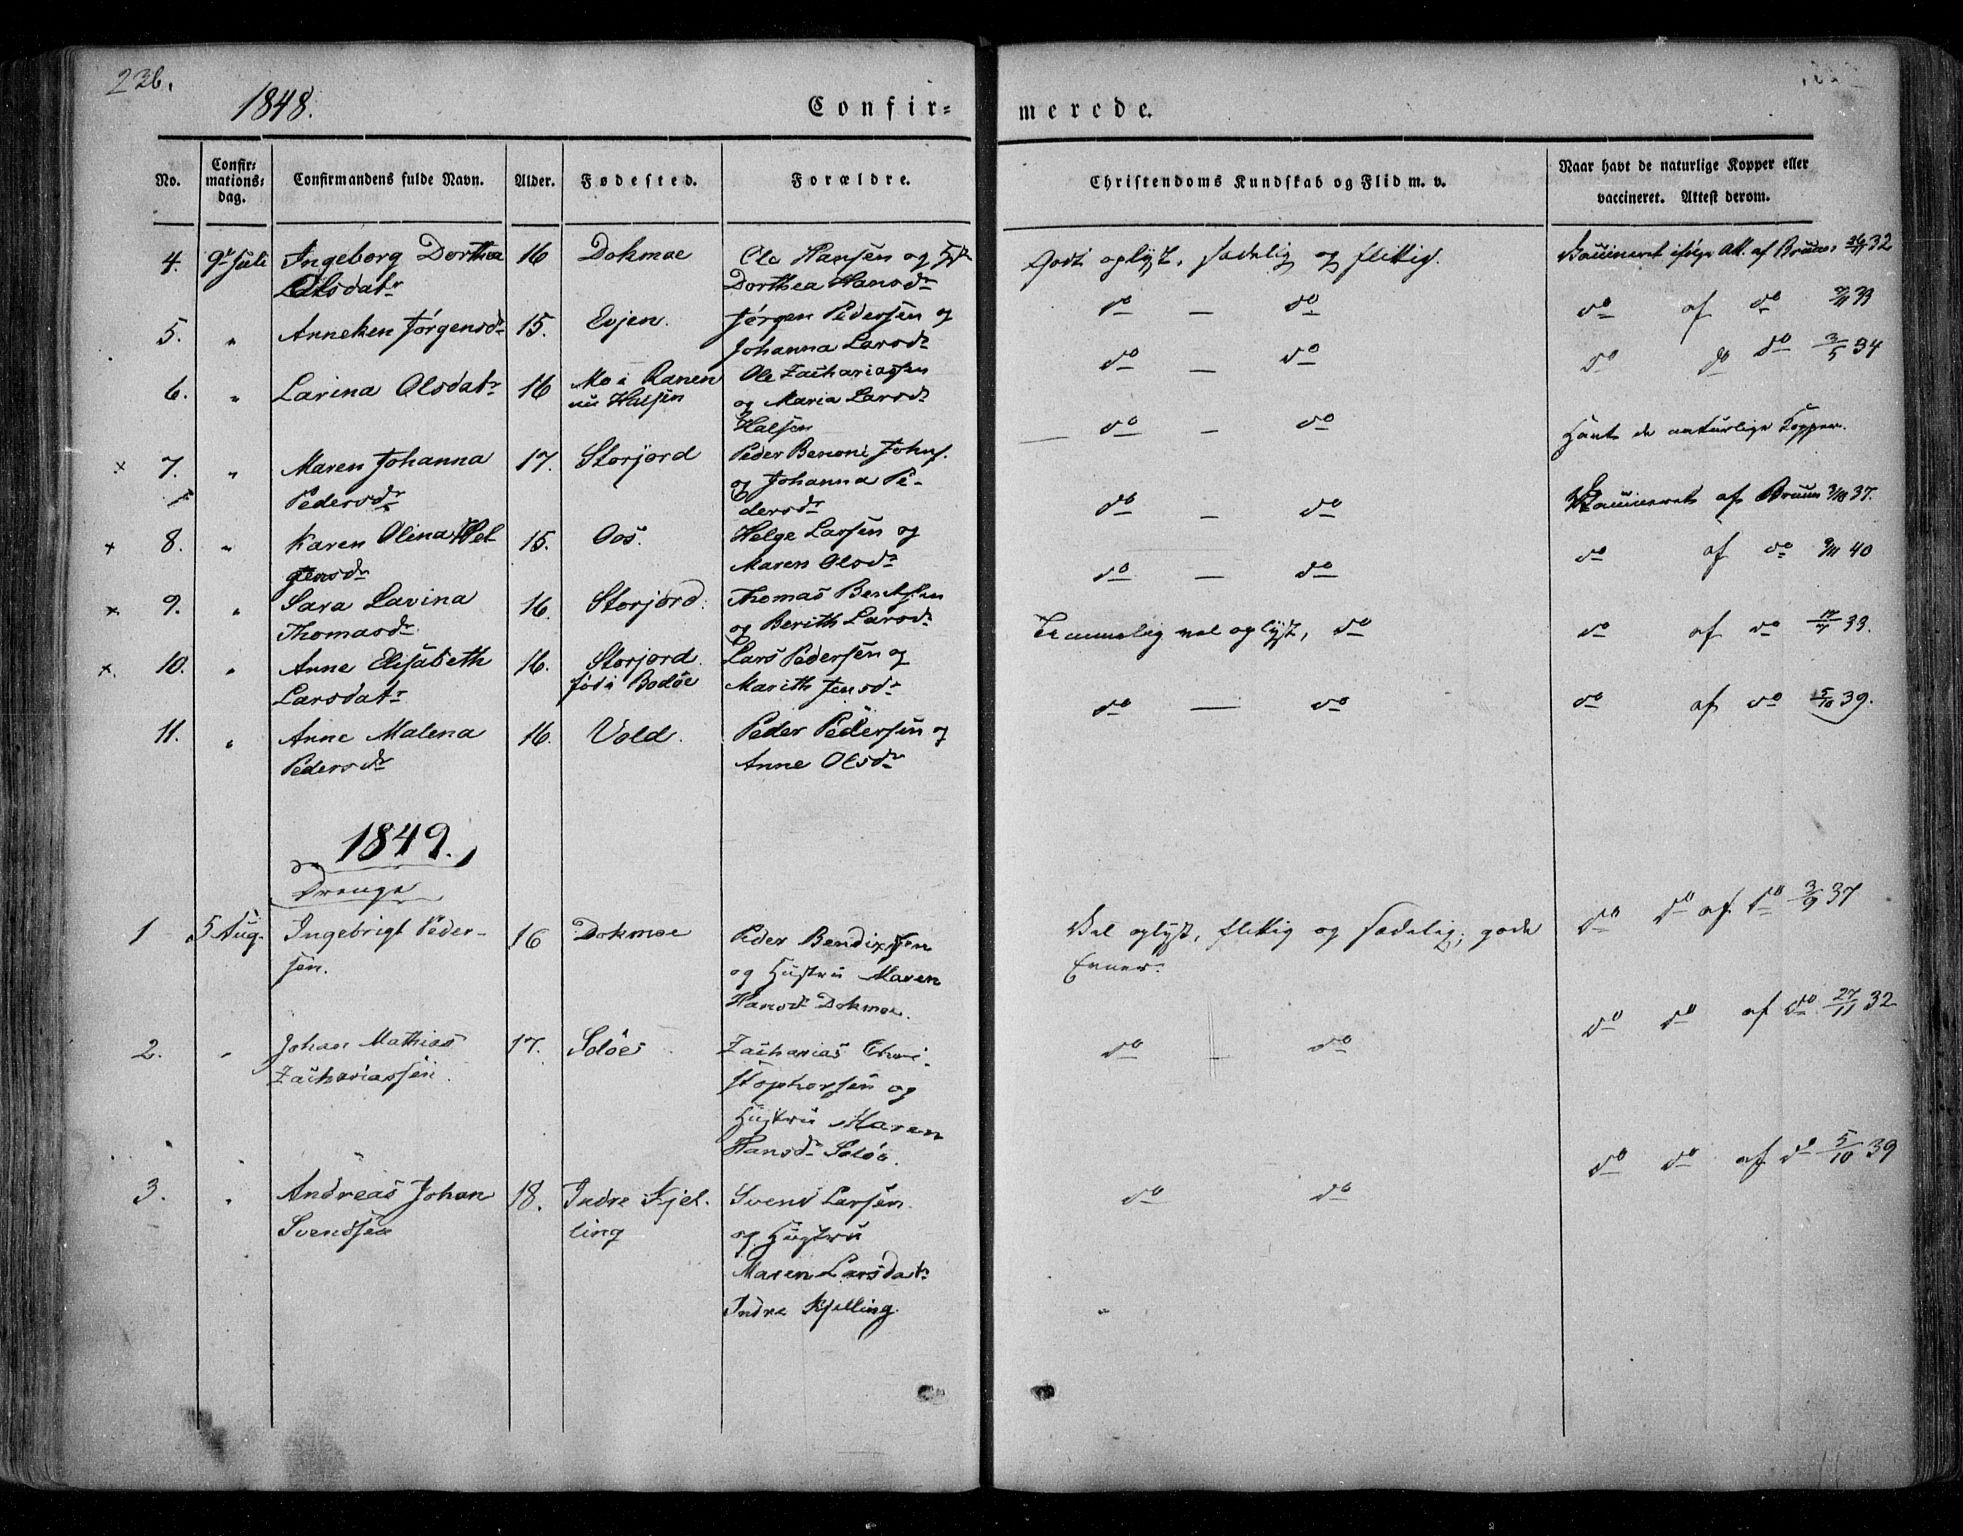 236.
1848.
Confir= merede.
No.
Confir=
mations=
dag.
Confirmandens fulde Navn.
Alder.
Fødested.
Forældre.
Christendoms Kundskab og Flid m. v.
Naar havt de naturlige Kopper eller
vaccineret. Attest derom.
4. 9de Juli Ingeborg Dorthea 16 Dokmoe Ole Hansen og Godt oplyst, sædelig og flittig. Vaccineret ifølge Att. af Bruun 32
Olsdatr Dorthea Hansdr
5. " Anneken Jørgensdr 15. Evjen. Jørgen Pedersen og do — do do af do 33
Johanna Larsdr
6. " Larina Olsdatr 16 Mo i Ranen Ole Zachariassen do — do do af do 3/5 34
nu Halsen og Maria Larsdr
Halsen
7. " Maren Johanna 17. Storjord Peder Benoni Johns. do — do Havt de naturlige Kopper.
Pedersdr og Johanna Pe-
dersdr
8. " Karen Olina Hel 15. Oos. Helge Larsen og do — do Vaccineret af Bruun 37.
gensdr Maren Olsdr
9. " Sara Lavina 16. Storjord. Thomas Bentsen do — do do af do 40
Thomasdr og Berith Larsdr
10. " Anne Elisabeth 16. Storjord. Lars Pedersen og Temmelig vel oplyst, do do af do 33.
Larsdatr fød i Bodøe Marith Jensdr
11. " Anne Malena 16. Vold. Peder Pedersen og do — do do af do 5/10 39.
Pedersdr Anne Olsdr
1849.
Drenge
1 5 Aug. Ingebrigt Peder- 16 Dokmoe Peder Bendixsen Vel oplyst, flittig og sædelig; gode do do af do 3/9 37
sen. og Hustru Maren Evner.
Hansdr Dokmoe.
2. " Johan Mathias 17. Soløe Zacharias Chri- do — do do do af do 27/11 32
Zachariassen. stophersen og
Hustru Maren
Hansdr Soløe.
3. " Andreas Johan 18. Indre Kjel- Svend Larsen do do do do af do 5/10 39
Svendsen ling og Hustru
Maren Larsdatr
Indre Kjelling.